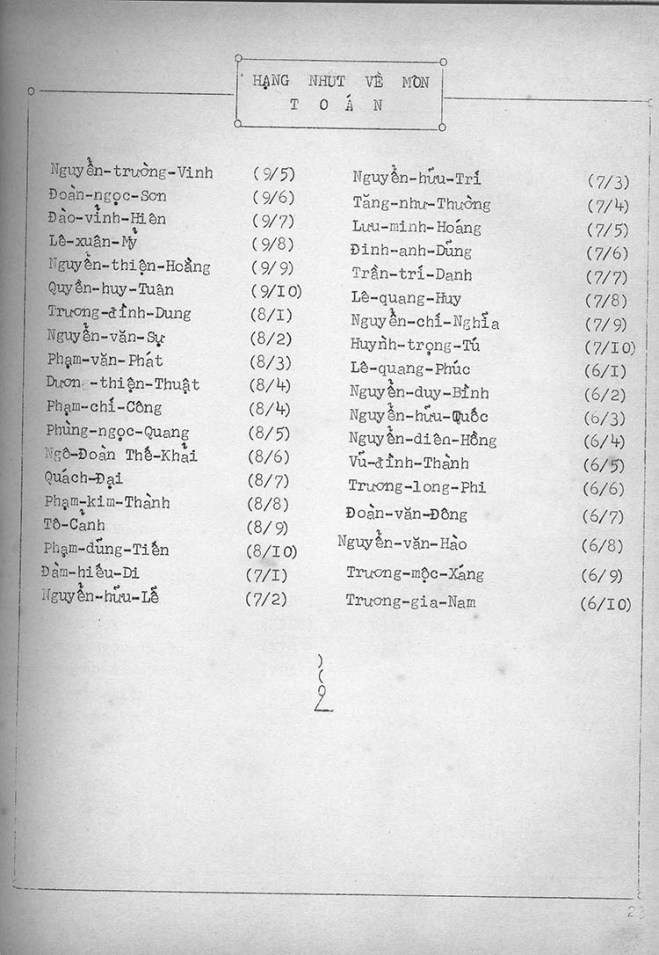 HẠNG NHUT VỀ MÔN
T O Á N
Nguyễn-trường-Vinh (9/5)
Đoàn-ngọc-Sơn (9/6)
Đào-vĩnh-Hiên (9/7)
Lê-xuân-Mỹ (9/8)
Nguyễn-thiện-Hoằng (9/9)
Quyền-huy-Tuân (9/10)
Trương-đình-Dung (8/1)
Nguyễn-văn-Sự (8/2)
Phạm-văn-Phát (8/3)
Dươn-thiện-Thuật (8/4)
Phạm-chí-Công (8/4)
Phùng-ngọc-Quang (8/5)
Ngô-Đoàn Thế-Khải (8/6)
Quách-Đại (8/7)
Phạm-kim-Thành (8/8)
Tô-Cảnh (8/9)
Phạm-dũng-Tiến (8/10)
Đàm-hiếu-Di (7/1)
Nguyễn-hữu-Lễ (7/2)
Nguyễn-hữu-Trí (7/3)
Tăng-như-Thường (7/4)
Lưu-minh-Hoáng (7/5)
Đinh-anh-Dũng (7/6)
Trần-trí-Danh (7/7)
Lê-quang-Huy (7/8)
Nguyễn-chí-Nghĩa (7/9)
Huỳnh-trọng-Tú (7/10)
Lê-quang-Phúc (6/1)
Nguyễn-duy-Bình (6/2)
Nguyễn-hữu-Quốc (6/3)
Nguyễn-diên-Hồng (6/4)
Vũ-đình-Thành (6/5)
Trương-long-Phi (6/6)
Đoàn-văn-Đông (6/7)
Nguyễn-văn-Hào (6/8)
Trương-mộc-Xáng (6/9)
Trương-gia-Nam (6/10)